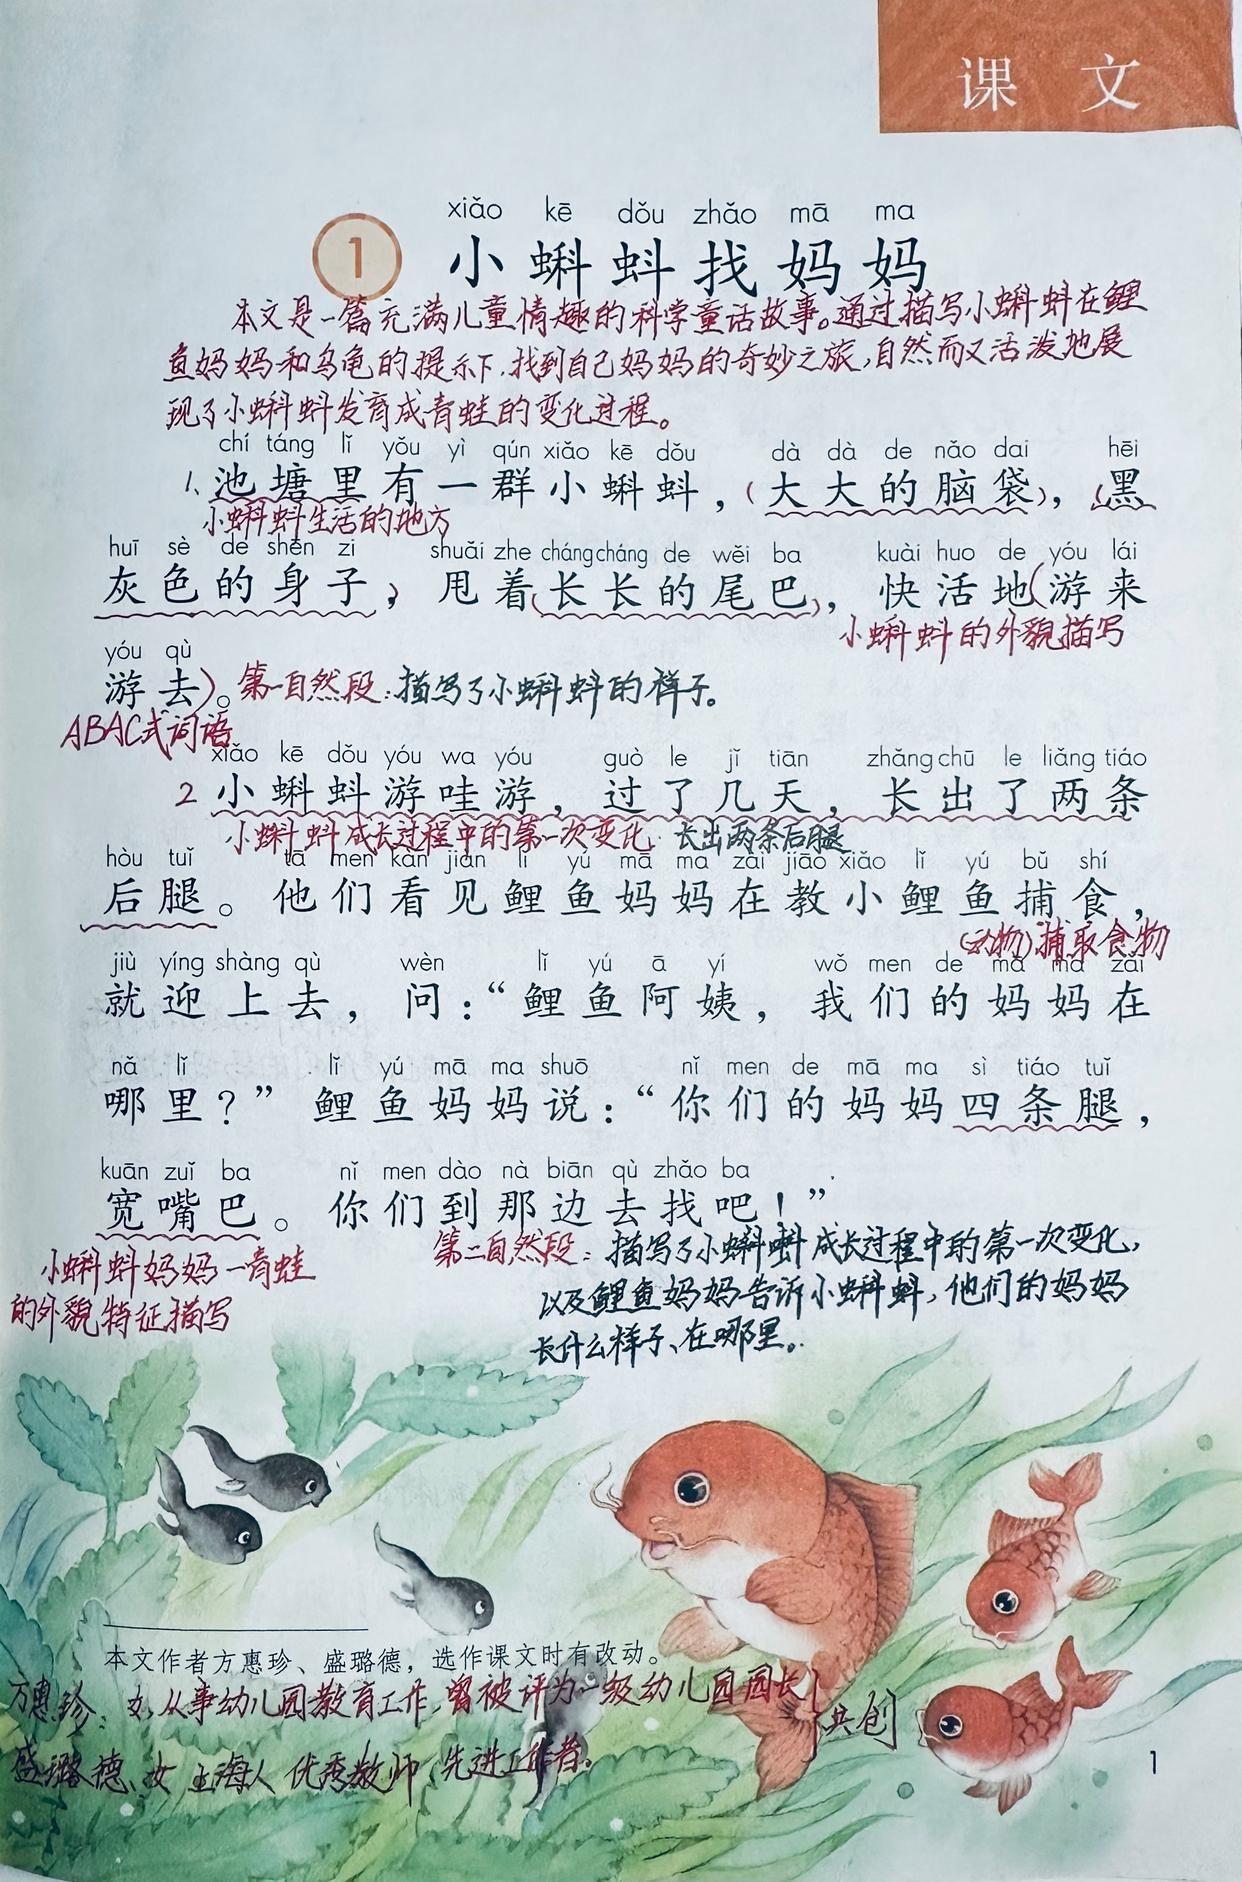 课 文
xiǎo kē dǒu zhǎo mā ma
1 小蝌蚪找妈妈
本文是一篇充满儿童情趣的科学童话故事。通过描写小蝌蚪在鲤
鱼妈妈和乌龟的提示下,找到自己妈妈的奇妙之旅,自然而又活泼地展
现了小蝌蚪发育成青蛙的变化过程。
chí táng lǐ yǒu yì qún xiǎo kē dǒu dà dà de nǎo dai hēi
1、池塘里有一群小蝌蚪,(大大的脑袋),(黑
小蝌蚪生活的地方
huī sè de shēn zi shuǎi zhe cháng cháng de wěi ba kuài huo de yóu lái
灰色的身子),甩着(长长的尾巴),快活地(游来
小蝌蚪的外貌描写
yóu qù
游去)。第一自然段:描写了小蝌蚪的样子。
ABAC式词语
xiǎo kē dǒu yóu wa yóu guò le jǐ tiān zhǎng chū le liǎng tiáo
2 小蝌蚪游哇游,过了几天,长出了两条
小蝌蚪成长过程中的第一次变化:长出两条后腿
hòu tuǐ tā men kàn jiàn lǐ yú mā ma zài jiāo xiǎo lǐ yú bǔ shí
后腿。他们看见鲤鱼妈妈在教小鲤鱼捕食,
(动物)捕取食物
jiù yíng shàng qù wèn lǐ yú ā yí wǒ men de mā ma zài
就迎上去,问:“鲤鱼阿姨,我们的妈妈在
nǎ lǐ lǐ yú mā ma shuō nǐ men de mā ma sì tiáo tuǐ
哪里?”鲤鱼妈妈说:“你们的妈妈四条腿,
kuān zuǐ ba nǐ men dào nà biān qù zhǎo ba
宽嘴巴。你们到那边去找吧!”
第二自然段:描写了小蝌蚪成长过程中的第一次变化,
以及鲤鱼妈妈告诉小蝌蚪,他们的妈妈
长什么样子、在哪里。
小蝌蚪妈妈—青蛙
的外貌特征描写
本文作者方惠珍、盛璐德,选作课文时有改动。
方惠珍:女,从事幼儿园教育工作,曾被评为一级幼儿园园长
共创
盛璐德、女 上海人 优秀教师、先进工作者。
1